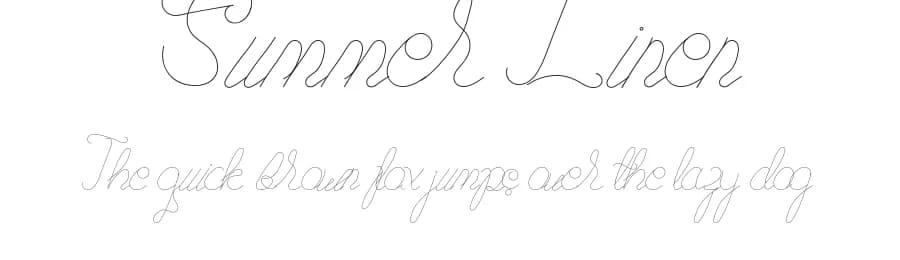 Summer Linen
The quick brown fox jumps over the lazy dog